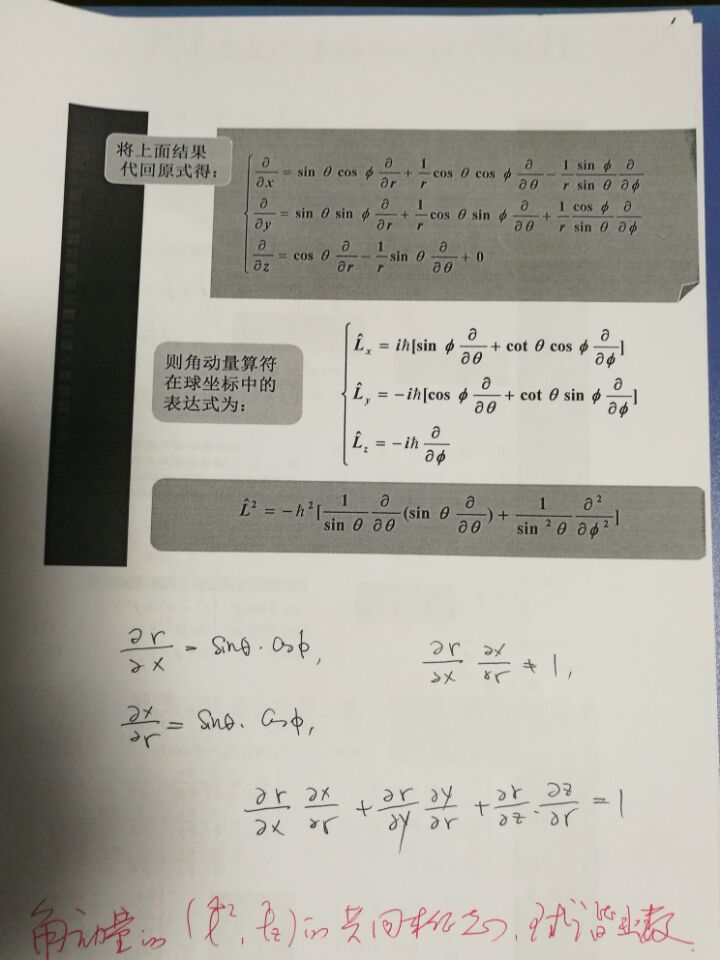 将上面结果
代回原式得:
∂/∂x = sin θ cos ϕ ∂/∂r + 1/r cos θ cos ϕ ∂/∂θ − 1/r sin ϕ/sin θ ∂/∂ϕ
∂/∂y = sin θ sin ϕ ∂/∂r + 1/r cos θ sin ϕ ∂/∂θ + 1/r cos ϕ/sin θ ∂/∂ϕ
∂/∂z = cos θ ∂/∂r − 1/r sin θ ∂/∂θ + 0
则角动量算符
在球坐标中的
表达式为:
L̂x = iħ[sin ϕ ∂/∂θ + cot θ cos ϕ ∂/∂ϕ]
L̂y = −iħ[cos ϕ ∂/∂θ + cot θ sin ϕ ∂/∂ϕ]
L̂z = −iħ ∂/∂ϕ
L̂² = −ħ²[1/sin θ ∂/∂θ (sin θ ∂/∂θ) + 1/sin² θ ∂²/∂ϕ²]
∂r/∂x = sinθ · cosϕ,
∂r/∂x ∂x/∂r ≠ 1,
∂x/∂r = sinθ · cosϕ,
∂r/∂x ∂x/∂r + ∂r/∂y ∂y/∂r + ∂r/∂z · ∂z/∂r = 1
角动量的 (L̂², L̂z) 的共同本征态, 球谐函数